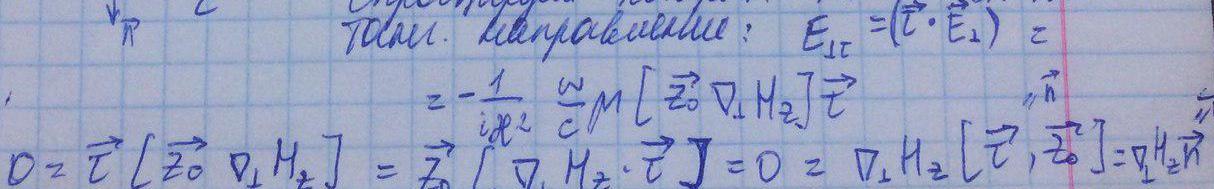 n⃗
танг. направление: E⊥τ = (τ⃗ · E⃗⊥) =
= - 1/(iæ²) ω/c μ [z⃗₀ ∇⊥ H_z] τ⃗ "n⃗
0 = τ⃗ [z⃗₀ ∇⊥ H_z] = z⃗₀ [∇⊥ H_z · τ⃗] = 0 = ∇⊥ H_z [τ⃗, z⃗₀] = ∇⊥ H_z n⃗